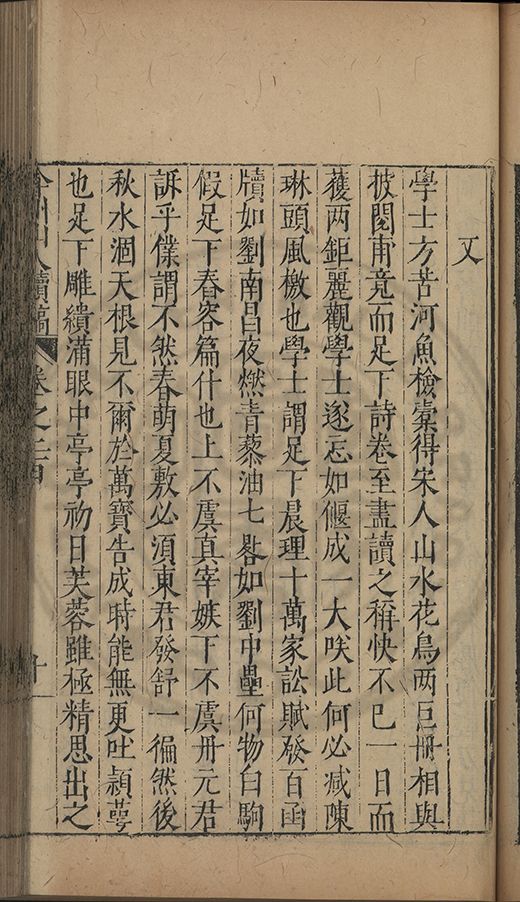 又
學士方苦河魚檢橐得宋人山水花鳥两巨冊相與
披閱甫竟而足下詩卷至盡讀之稱快不已一日而
獲两鉅麗觀學士遂忘如偃成一大咲此何必减陳
琳頭風檄也學士謂足下晨理十萬家訟賦發百函
牘如劉南昌夜燃青藜油七畧如劉中壘何物白駒
假足下舂容篇什也上不虞真宰嫉下不虞冊元君
訴乎僕謂不然春萌夏敷必須東君發舒一徧然後
秋水涸天根見不爾於萬寶告成時能無更吐頴蕚
也足下雕繢滿眼中亭亭初日芙蓉雖極精思出之
州山人續稿 卷之